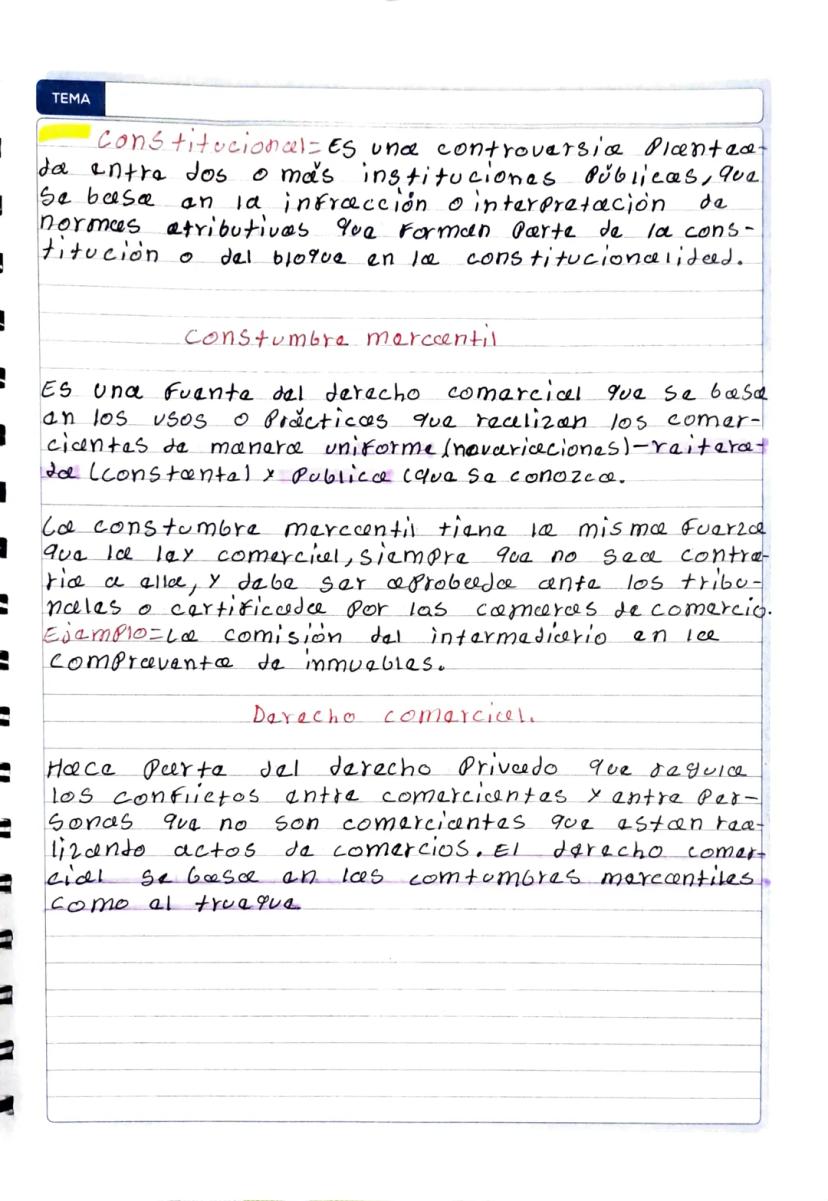 TEMA
Constitucional= Es una controversia plantea-
da entre dos o más instituciones públicas, que
se basa en la infracción o interpretación de
normas atributivas que forman parte de la cons-
titución o del bloque en la constitucionalidad.
Constumbre mercantil
Es una fuente del derecho comercial que se basa
en los usos o prácticas que realizan los comer-
ciantes de manera uniforme (novariaciones)-reitera-
da (constante) y publica (que se conozca.
La constumbre mercantil tiene la misma fuerza
que la ley comercial, siempre que no sea contra-
ria a ella, y debe ser aprobada ante los tribu-
nales o certificada por las camaras de comercio.
Ejemplo=La comisión del intermediario en la
compraventa de inmuebles.
Derecho comercial.
Hace parte del derecho privado que regula
los conflictos entre comerciantes y entre per-
sonas que no son comerciantes que estan rea-
lizando actos de comercios. El derecho comer-
cial se basa en las comtumbres mercantiles
como el trueque